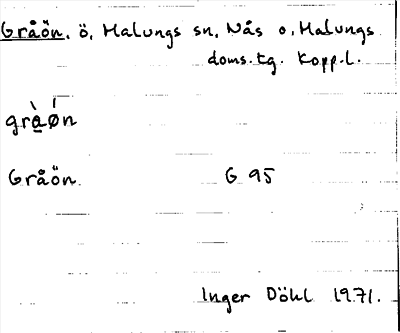 Gråön, ö, Malungs sn, Nås o. Malungs
doms.tg. Kopp.l.
grà̱ǿn
Gråön. G 95
Inger Döhl 1971.